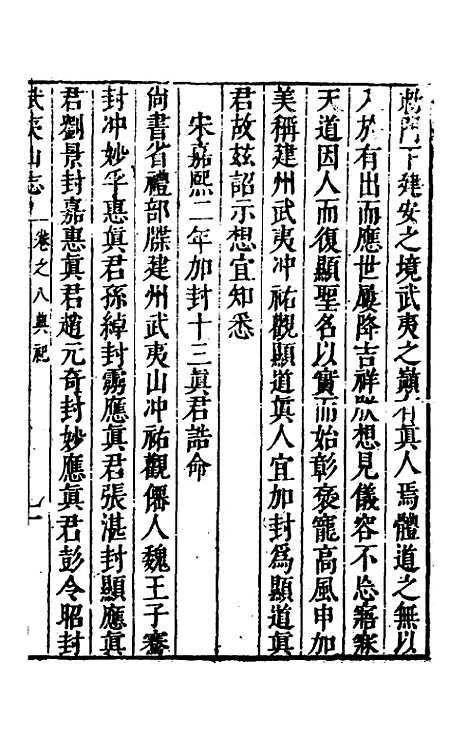 敕門下建安之境武夷之巔有眞人焉體道之無以
入於有出而應世屢降吉祥朕想見儀容不忘寤寐
天道因人而復顯聖名以實而始彰褒寵高風申加
美稱建州武夷冲祐觀顯道眞人宜加封爲顯道眞
君故玆詔示想宜知悉
宋嘉熙二年加封十三眞君誥命
尙書省禮部牒建州武夷山冲祐觀僊人魏王子騫
封冲妙孚惠眞君孫綽封靈應眞君張湛封顯應眞
君劉景封嘉惠眞君趙元奇封妙應眞君彭令昭封
武夷山志 卷之八典祀 一